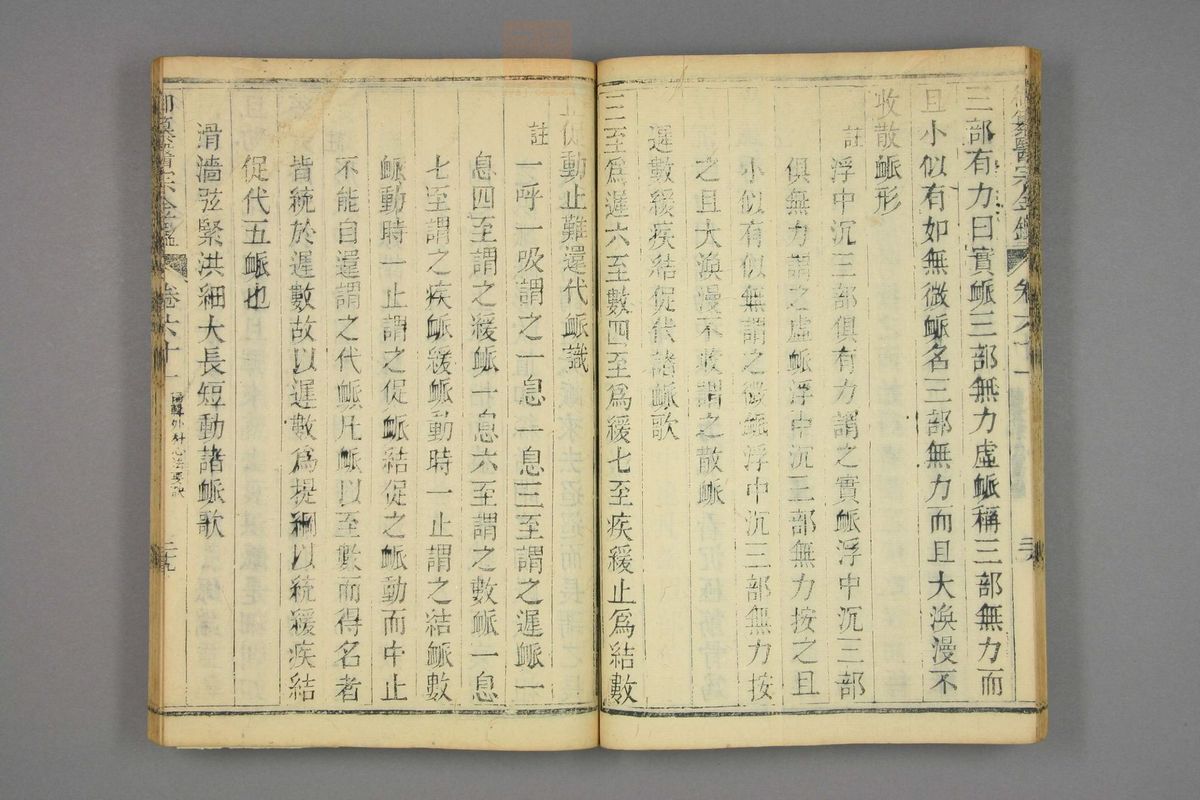 御纂醫宗金鑑 卷六十一
三部有力曰實䘑三部無力虛䘑稱三部無力而
且小似有如無微䘑名三部無力而且大渙漫不
收散䘑形
註 浮中沉三部俱有力謂之實䘑浮中沉三部
俱無力謂之虛䘑浮中沉三部無力按之且
小似有似無謂之微䘑浮中沉三部無力按
之且大渙漫不收謂之散䘑
遲數緩疾結促代諸䘑歌
三至爲遲六至數四至爲緩七至疾緩止爲結數
止促動止難還代䘑識
註 一呼一吸謂之一息一息三至謂之遲䘑一
息四至謂之緩䘑一息六至謂之數䘑一息
七至謂之疾䘑緩䘑動時一止謂之結䘑數
䘑動時一止謂之促䘑結促之䘑動而中止
不能自還謂之代䘑凡䘑以至數而得名者
皆統於遲數故以遲數爲提綱以統緩疾結
促代五䘑也
滑濇弦緊洪細大長短動諸䘑歌
御纂醫宗金鑑 卷六十一 編輯外科心法要訣 二九